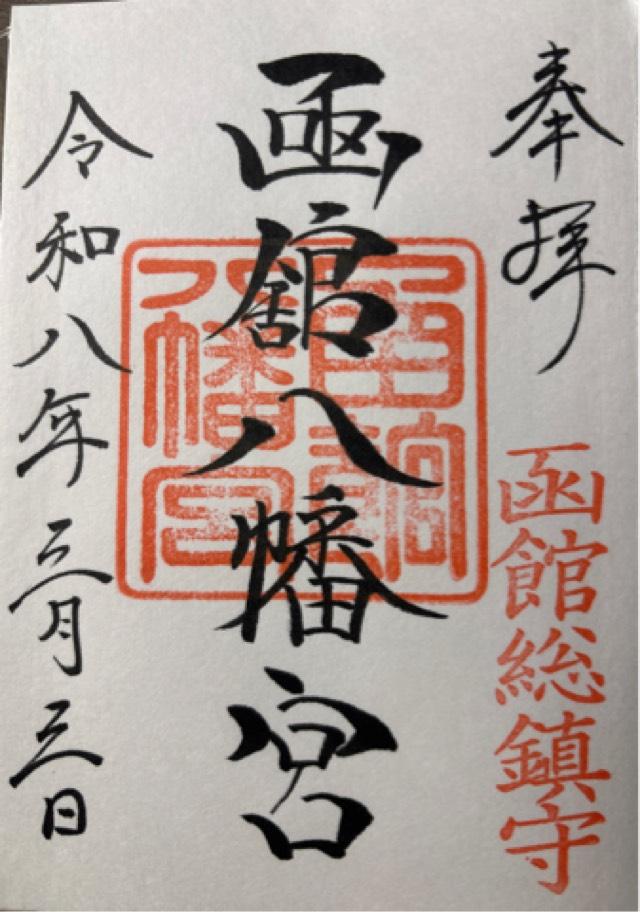 奉拝
函館総鎮守
函館八幡宮
函館八幡宮
令和八年三月三日